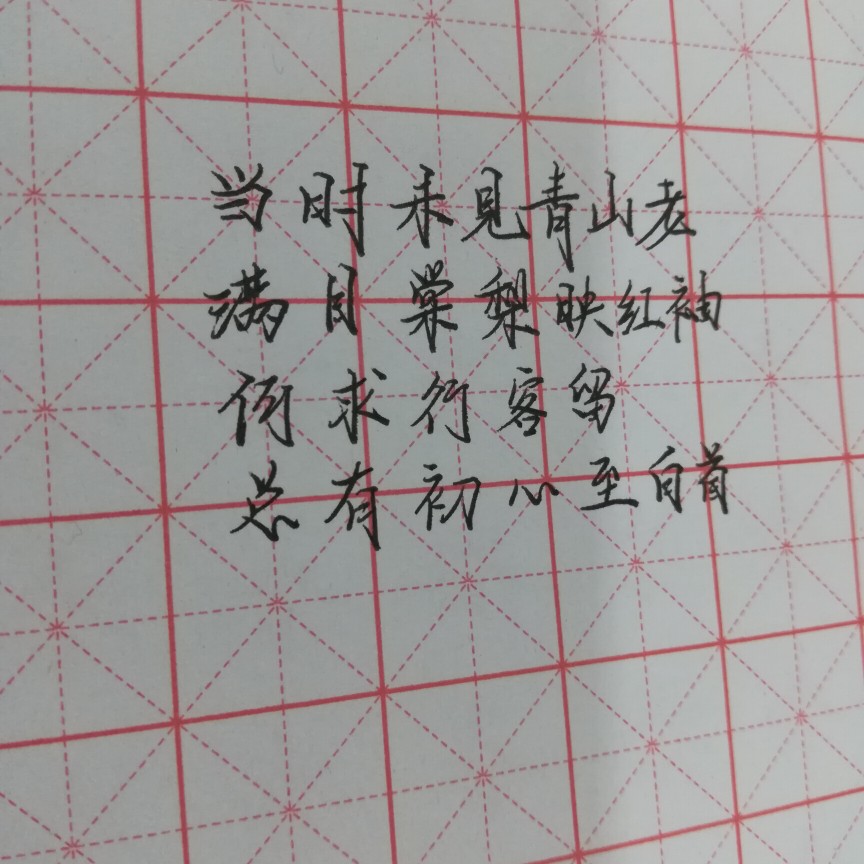 当时未见青山老
满目棠梨映红袖
何求行客留
总有初心至白首